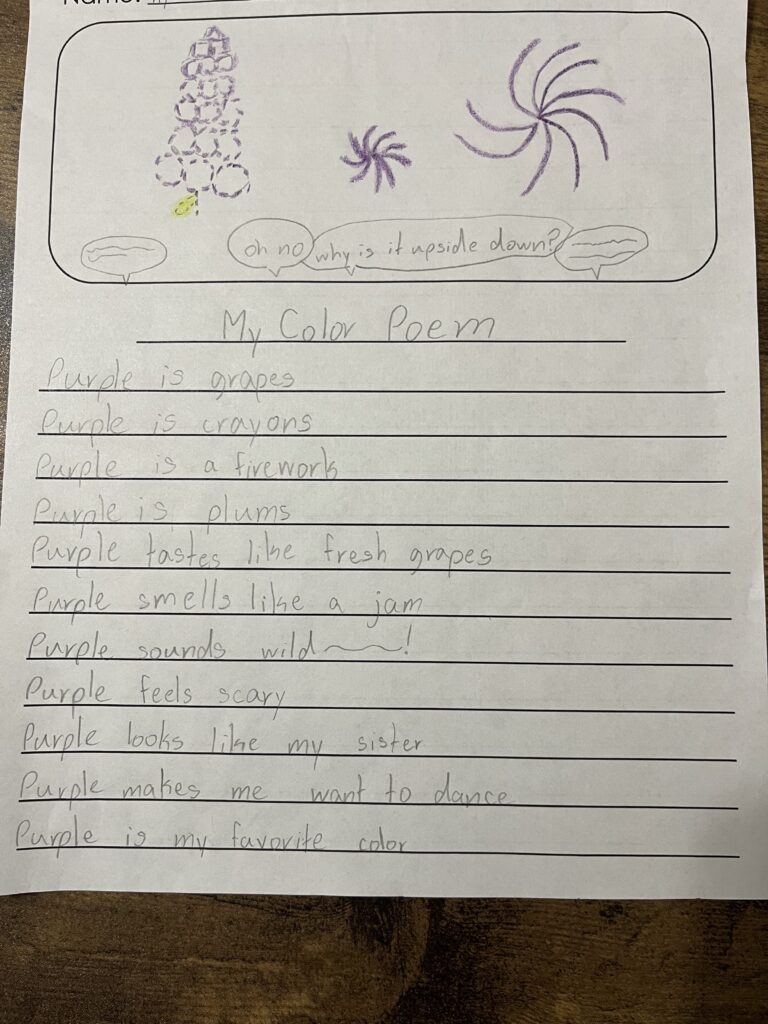 Name:
oh no
why is it upside down?
My Color Poem
Purple is grapes
Purple is crayons
Purple is a firework
Purple is plums
Purple tastes like fresh grapes
Purple smells like a jam
Purple sounds wild~~~!
Purple feels scary
Purple looks like my sister
Purple makes me want to dance
Purple is my favorite color